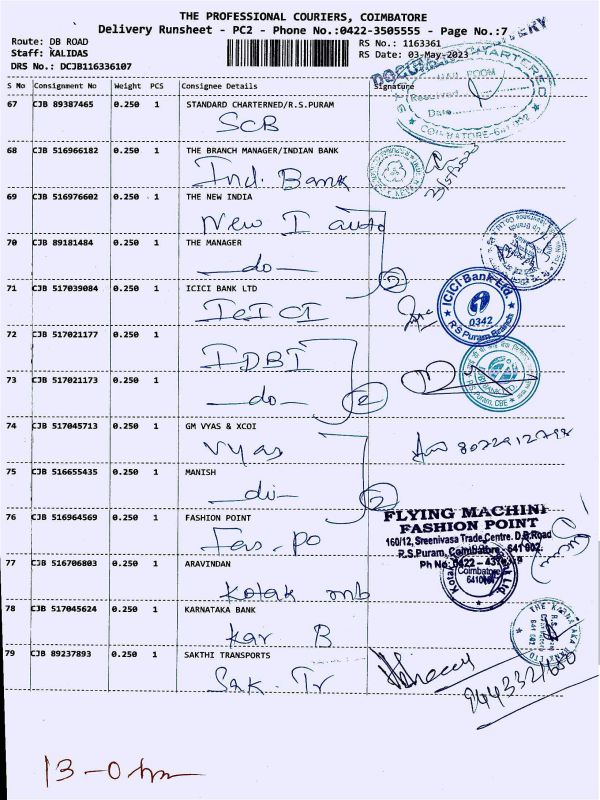 THE PROFESSIONAL COURIERS, COIMBATORE
Delivery Runsheet - PC2 - Phone No.:0422-3505555 - Page No.:7
Route: DB ROAD
Staff: KALIDAS
DRS No.: DCJB116336107
RS No.: 1163361
RS Date: 03-May-2023
S No Consignment No Weight PCS Consignee Details Signature
67 CJB 89387465 0.250 1 STANDARD CHARTERNED/R.S.PURAM
SCB
MAIL ROOM
Received
Date
COIMBATORE-641 002
68 CJB 516966182 0.250 1 THE BRANCH MANAGER/INDIAN BANK
Ind. Bank
69 CJB 516976602 0.250 1 THE NEW INDIA
New I auto
70 CJB 89181484 0.250 1 THE MANAGER
-do-
2
71 CJB 517039084 0.250 1 ICICI BANK LTD
ICICI
ICICI Bank Ltd.
0342
R S Puram Branch
72 CJB 517021177 0.250 1
IDBI
73 CJB 517021173 0.250 1
-do-
2
R.S. Puram, CBE
74 CJB 517045713 0.250 1 GM VYAS & XCOI
Vyas
75 CJB 516655435 0.250 1 MANISH
-do-
2
76 CJB 516964569 0.250 1 FASHION POINT
Fas. po
FLYING MACHINE
FASHION POINT
160/12, Sreenivasa Trade Centre. D.B.Road
R.S.Puram, Coimbatore - 641 002.
77 CJB 516706803 0.250 1 ARAVINDAN
Kotak mb
Coimbatore
78 CJB 517045624 0.250 1 KARNATAKA BANK
Kar B
79 CJB 89237893 0.250 1 SAKTHI TRANSPORTS
Sak. Tr